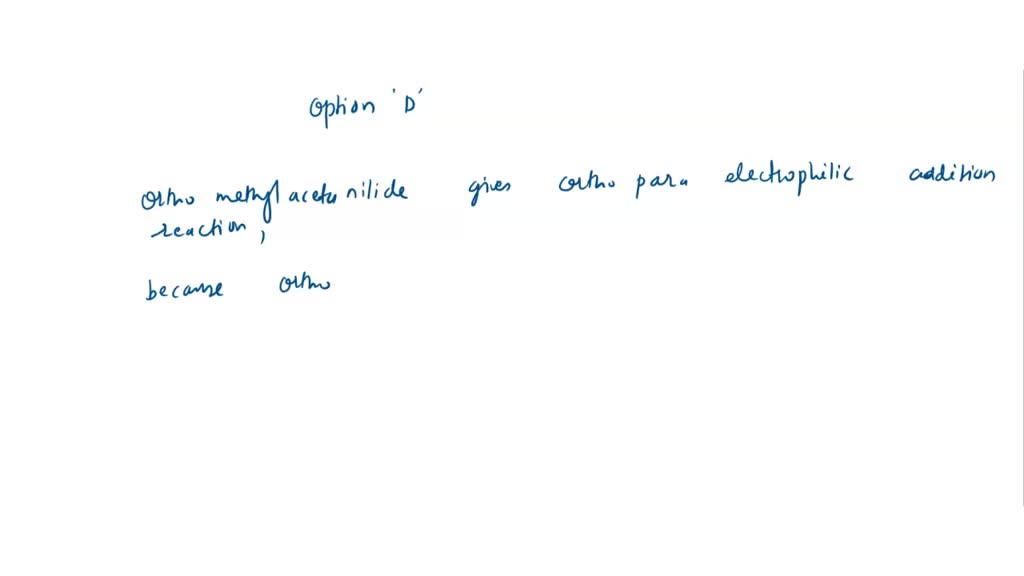 Option 'D'
Ortho methyl acetanilide gives ortho para electrophilic addition
reaction,
because ortho